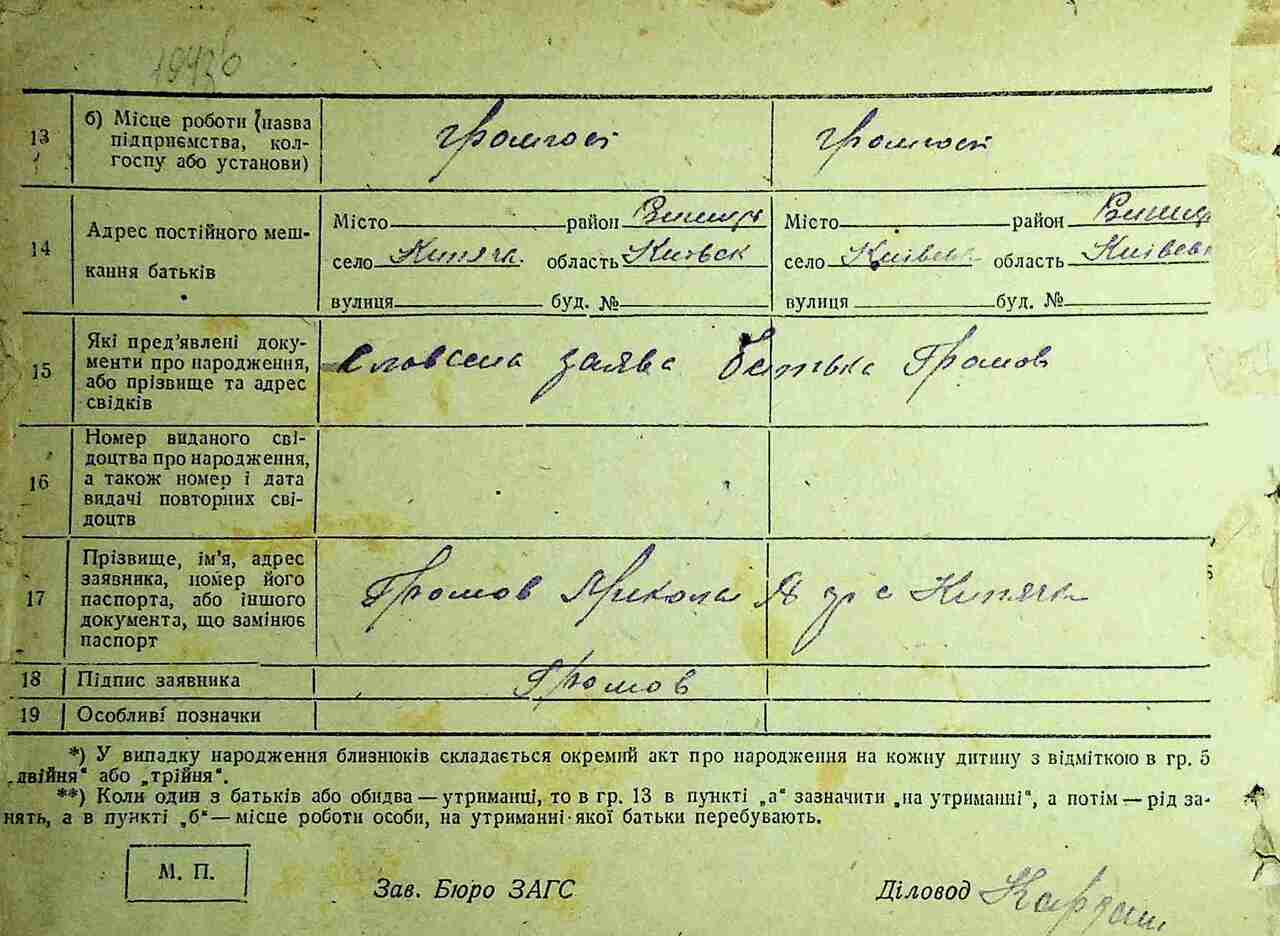 13 б) Місце роботи (назва підприємства, кол-
госпу або установи) громгосп громгосп
14 Адрес постійного меш-
кання батьків
Місто район Місто район
село Кипячк. область Київськ село Київськ область Київськ
вулиця буд. № вулиця буд. №
15 Які пред’явлені доку-
менти про народження,
або прізвище та адрес
свідків
словесна заява батька Громов
16 Номер виданого сві-
доцтва про народження,
а також номер і дата
видачі повторних сві-
доцтв
17 Прізвище, ім’я, адрес
заявника, номер його
паспорта, або іншого
документа, що замінює
паспорт
Громов Микола с Кипячк
18 Підпис заявника Громов
19 Особливі позначки
*) У випадку народження близнюків складається окремий акт про народження на кожну дитину з відміткою в гр. 5
„двійня“ або „трійня“.
**) Коли один з батьків або обидва — утриманці, то в гр. 13 в пункті „а“ зазначити „на утриманні“, а потім — рід за-
нять, а в пункті „б“ — місце роботи особи, на утриманні якої батьки перебувають.
М. П.
Зав. Бюро ЗАГС Діловод